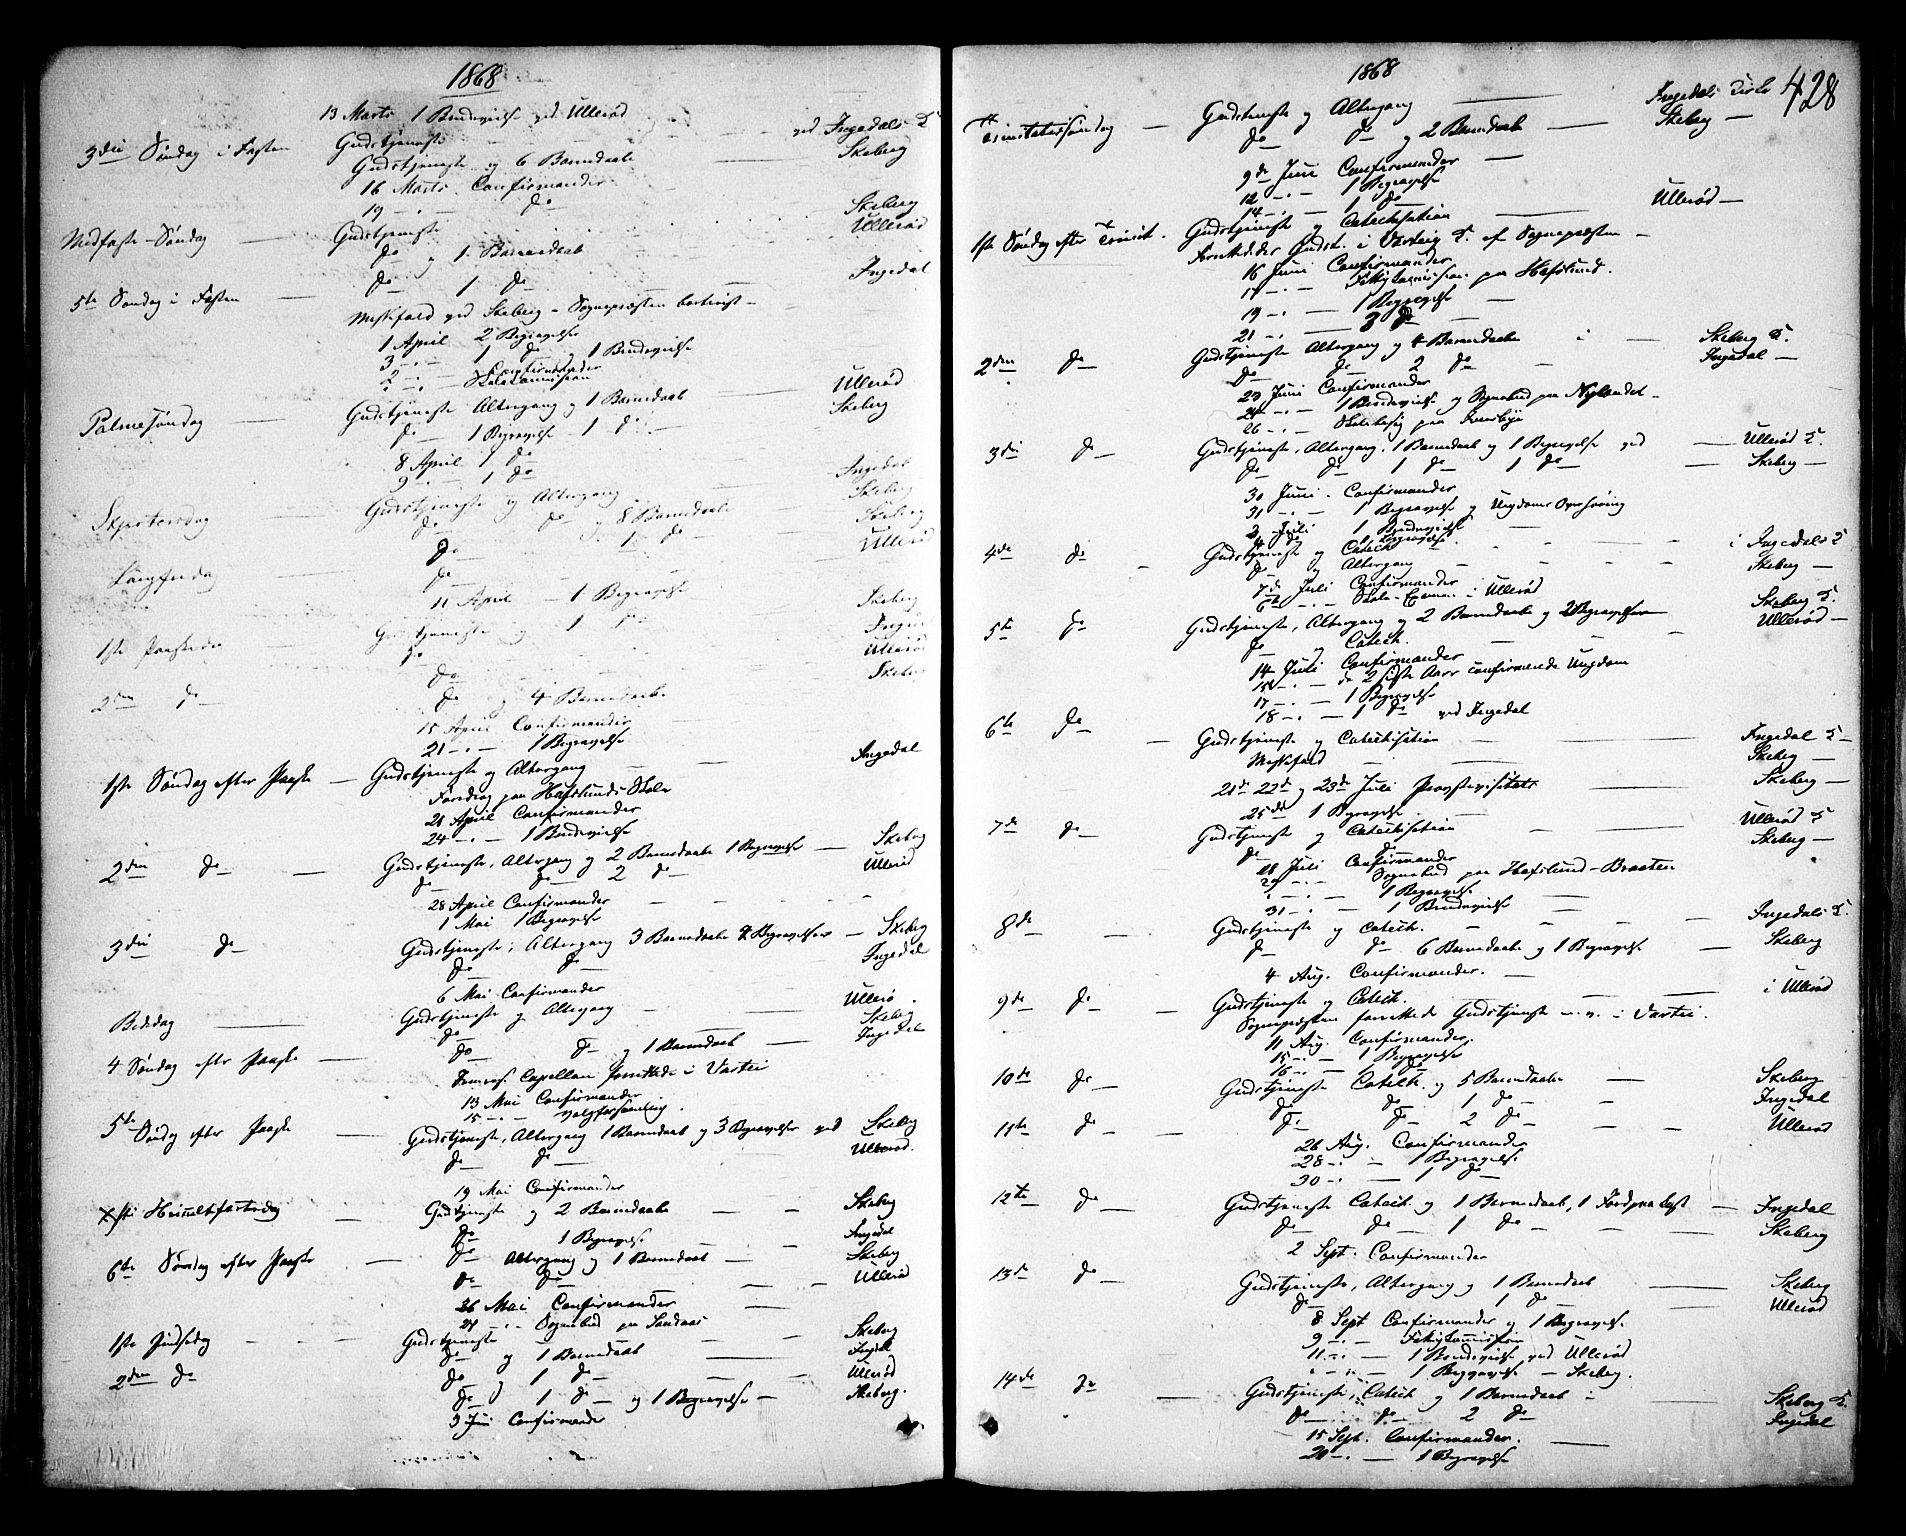 1868
13 Marts 1 Brudevielse ved Ullerød
3die Søndag i Fasten Gudstjeneste ved Ingedals K
Gudstjeneste og 6 Barnedaab Skeberg
16 Marts Confirmander
19 -"- do
Midfaste-Søndag Gudstjeneste Skeberg
do og 1 Barnedaab Ullerød
5te Søndag i Fasten do 1 do Ingedal
Messefald ved Skeberg - Sognepræsten bortreist -
1 April 2 Begravelse
3 -"- 1 do 1 Brudevielse
2 -"- Confirmander
-"- Skolecommission
Palmesøndag Gudstjeneste Altergang og 1 Barnedaab Ullerød
do 1 Begravelse 1 do Skeberg
8 April 1 do
9 -"- 1 do
Skjertorsdag Gudstjeneste og Altergang Ingedal
do do og 8 Barnedaab Skeberg
Langfredag do 1 do Skeberg
do Ullerød
11 April - 1 Begravelse
1ste Paaskedag Gudstjeneste og 1 do Skeberg
do Ingedal
2den do do Ullerød
do og 4 Barnedaab Skeberg
15 April Confirmander
21 -"- 1 Begravelse
1ste Søndag efter Paaske Gudstjeneste og Altergang Ingedal
Foredrag paa Hafslunds Skole
21 April Confirmander
24 -"- 1 Brudevielse
2den do Gudstjeneste, Altergang og 2 Barnedaab 1 Begravelse Skeberg
do do 2 do Ullerød
28 April Confirmander
1 Mai 1 Begravelse
3die do Gudstjeneste, Altergang 3 Barnedaab Begravelser Skeberg
do do Ingedal
6 Mai Confirmander
Bededag Gudstjeneste og Altergang Ullerø
do Skeberg
4 Søndag efter Paaske do do og 1 Barnedaab Ingedal
Capellan forrettede i Vartei
13 Mai Confirmander
15 -"- Valgforsamling
5te Søndag efter Paaske Gudstjeneste, Altergang 1 Barnedaab og 3 Begravelser ved Skeberg
do do Ullerød.
19 Mai Confirmander
Himmelfartsdag Gudstjeneste og 2 Barnedaab Skeberg
do 1 Begravelse Ingedal
6te Søndag efter Paaske do Altergang og 1 Barnedaab Skeberg
do do Ullerød
26 Mai Confirmander
-"- Sognebud paa Sandaas
1ste Pindsedag Gudstjeneste Skeberg
do og 1 Barnedaab Ingedal
2den do do og 1 do Ullerød
do 1 do og 1 Begravelse Skeberg.
3 Juni Confirmander
1868
428
Gudstjeneste og Altergang Ingedals Kirke
Trinitatissøndag do do og 2 Barnedaab Skeberg
9de Juni Confirmander
12 -"- 1 Begravelse
14 -"- 1 do
1ste Søndag efter Trinit. Gudstjeneste og Catechisation Ullerød
Forrettedes Gudst. i Varteig K. af Sognepræsten
16 Juni Confirmander
17 -"- Fattigcommission paa Hafslund.
19 -"- 1 Begravelse
21 -"- 3 do
2den do Gudstjeneste Altergang og 4 Barnedaab i Skeberg K.
do do 2 do Ingedal
23 Juni Confirmander
24 -"- 1 Brudevielse og Sognebud paa Nylandet
26 -"- Skolebesøg paa
3die do Gudstjeneste, Altergang, 1 Barnedaab og 1 Begravelse ved Ullerød K.
do do 1 do 1 do Skeberg
30 Juni Confirmander
31 -"- 1 Begravelse og Ungdoms Overhøring
2 Juli 1 Brudevielse
4 do 1 Begravelse
4de do Gudstjeneste og Catech i Ingedals K
do og Altergang Skeberg
7de Juli Confirmander
6te -"- Skole-Examen i Ullerød
5te do Gudstjeneste, Altergang og 2 Barnedaab og 2 Begravelser Skeberg K.
do og Catech. Ullerød
14 Juli Confirmander
15 -"- de 2 sidste Aars confirmerede Ungdom
17 -"- 1 Begravelse
18 -"- 1 do ved Ingedal
6te do Gudstjeneste og Catechisation Ingedal K
Messefald Skeberg
21de 22de og 23de Juli Provstevisitats Skeberg
25de 1 Begravelse
7de do Gudstjeneste og Catechisation Ullerød K
do do Skeberg
28 Juli Confirmander
29 -"- Sognebud paa Hafslund-Braaten
-"- 1 Begravelse
31 -"- 1 Brudevielse
8de do Gudstjeneste og Catech. Ingedals K.
do do 6 Barnedaab og 1 Begravelse Skeberg
4 Aug. Confirmander.
9de do Gudstjeneste og Catech. i Ullerød
Sognepræsten forrettede Gudstjeneste m.v. i Vartei.
11 Aug. Confirmander.
15 -"- 1 Begravelse
16 -"- do
10de do Gudstjeneste Catech. og 5 Barnedaab Skeberg
do do 1 do Ingedal
11te do do do 2 do Ullerød
26 Aug. Confirmander
28 -"- 1 Begravelse
30 -"- 1 do
12te do Gudstjeneste Catech. og 1 Barnedaab, 1 Jordpaakast Ingedal
do do 1 do Skeberg
2 Sept. Confirmander
13de do Gudstjeneste, Altergang og 1 Barnedaab Skeberg
do 1 do Ullerød
8 Sept Confirmander og 1 Begravelse
9 -"- Fattigcommission
11 -"- 1 Brudevielse ved Ullerød
-"- 1 Begravelse - Skeberg.
14de do Gudstjeneste, Catech og 1 Barnedaab i Skeberg K.
do do 2 do Ingedal
15 Sept. Confirmander.
20 -"- 1 Begravelse